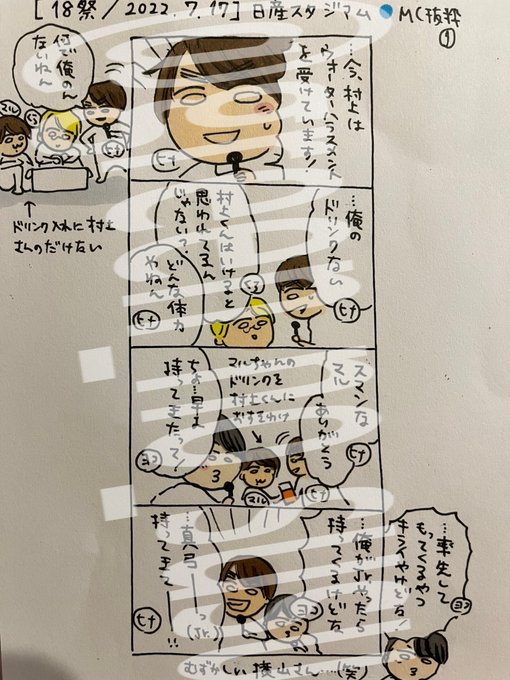 [18祭/2022.7.17]日産スタジアム●MC抜粋
①
何で俺のん
ないねん
マル
ヒナ
↑
ドリンク入れに村上
さんのだけない
…今、村上は
ウォーターハラスメント
を受けています!
ヒナ
…俺の
ドリンクない
ヒナ
村上くんはいけると
思われてるん
じゃない?
どんな体力
やねん
ヒナ
スマンな
マル
ありがとう
ヒナ
マルちゃんの
ドリンクを
村上くんに
おすそわけ
マル
ちょ…早よ
持ってきたって!
ヨコ
…率先して
もってくるやつ
キライやけどな!
ヨコ
…俺がJr.やったら
持ってくるけどな
ヨコ
…真弓ーーっ
(Jr.)
持ってきてー!!
ヒナ
むずかしい横山さん…(笑)